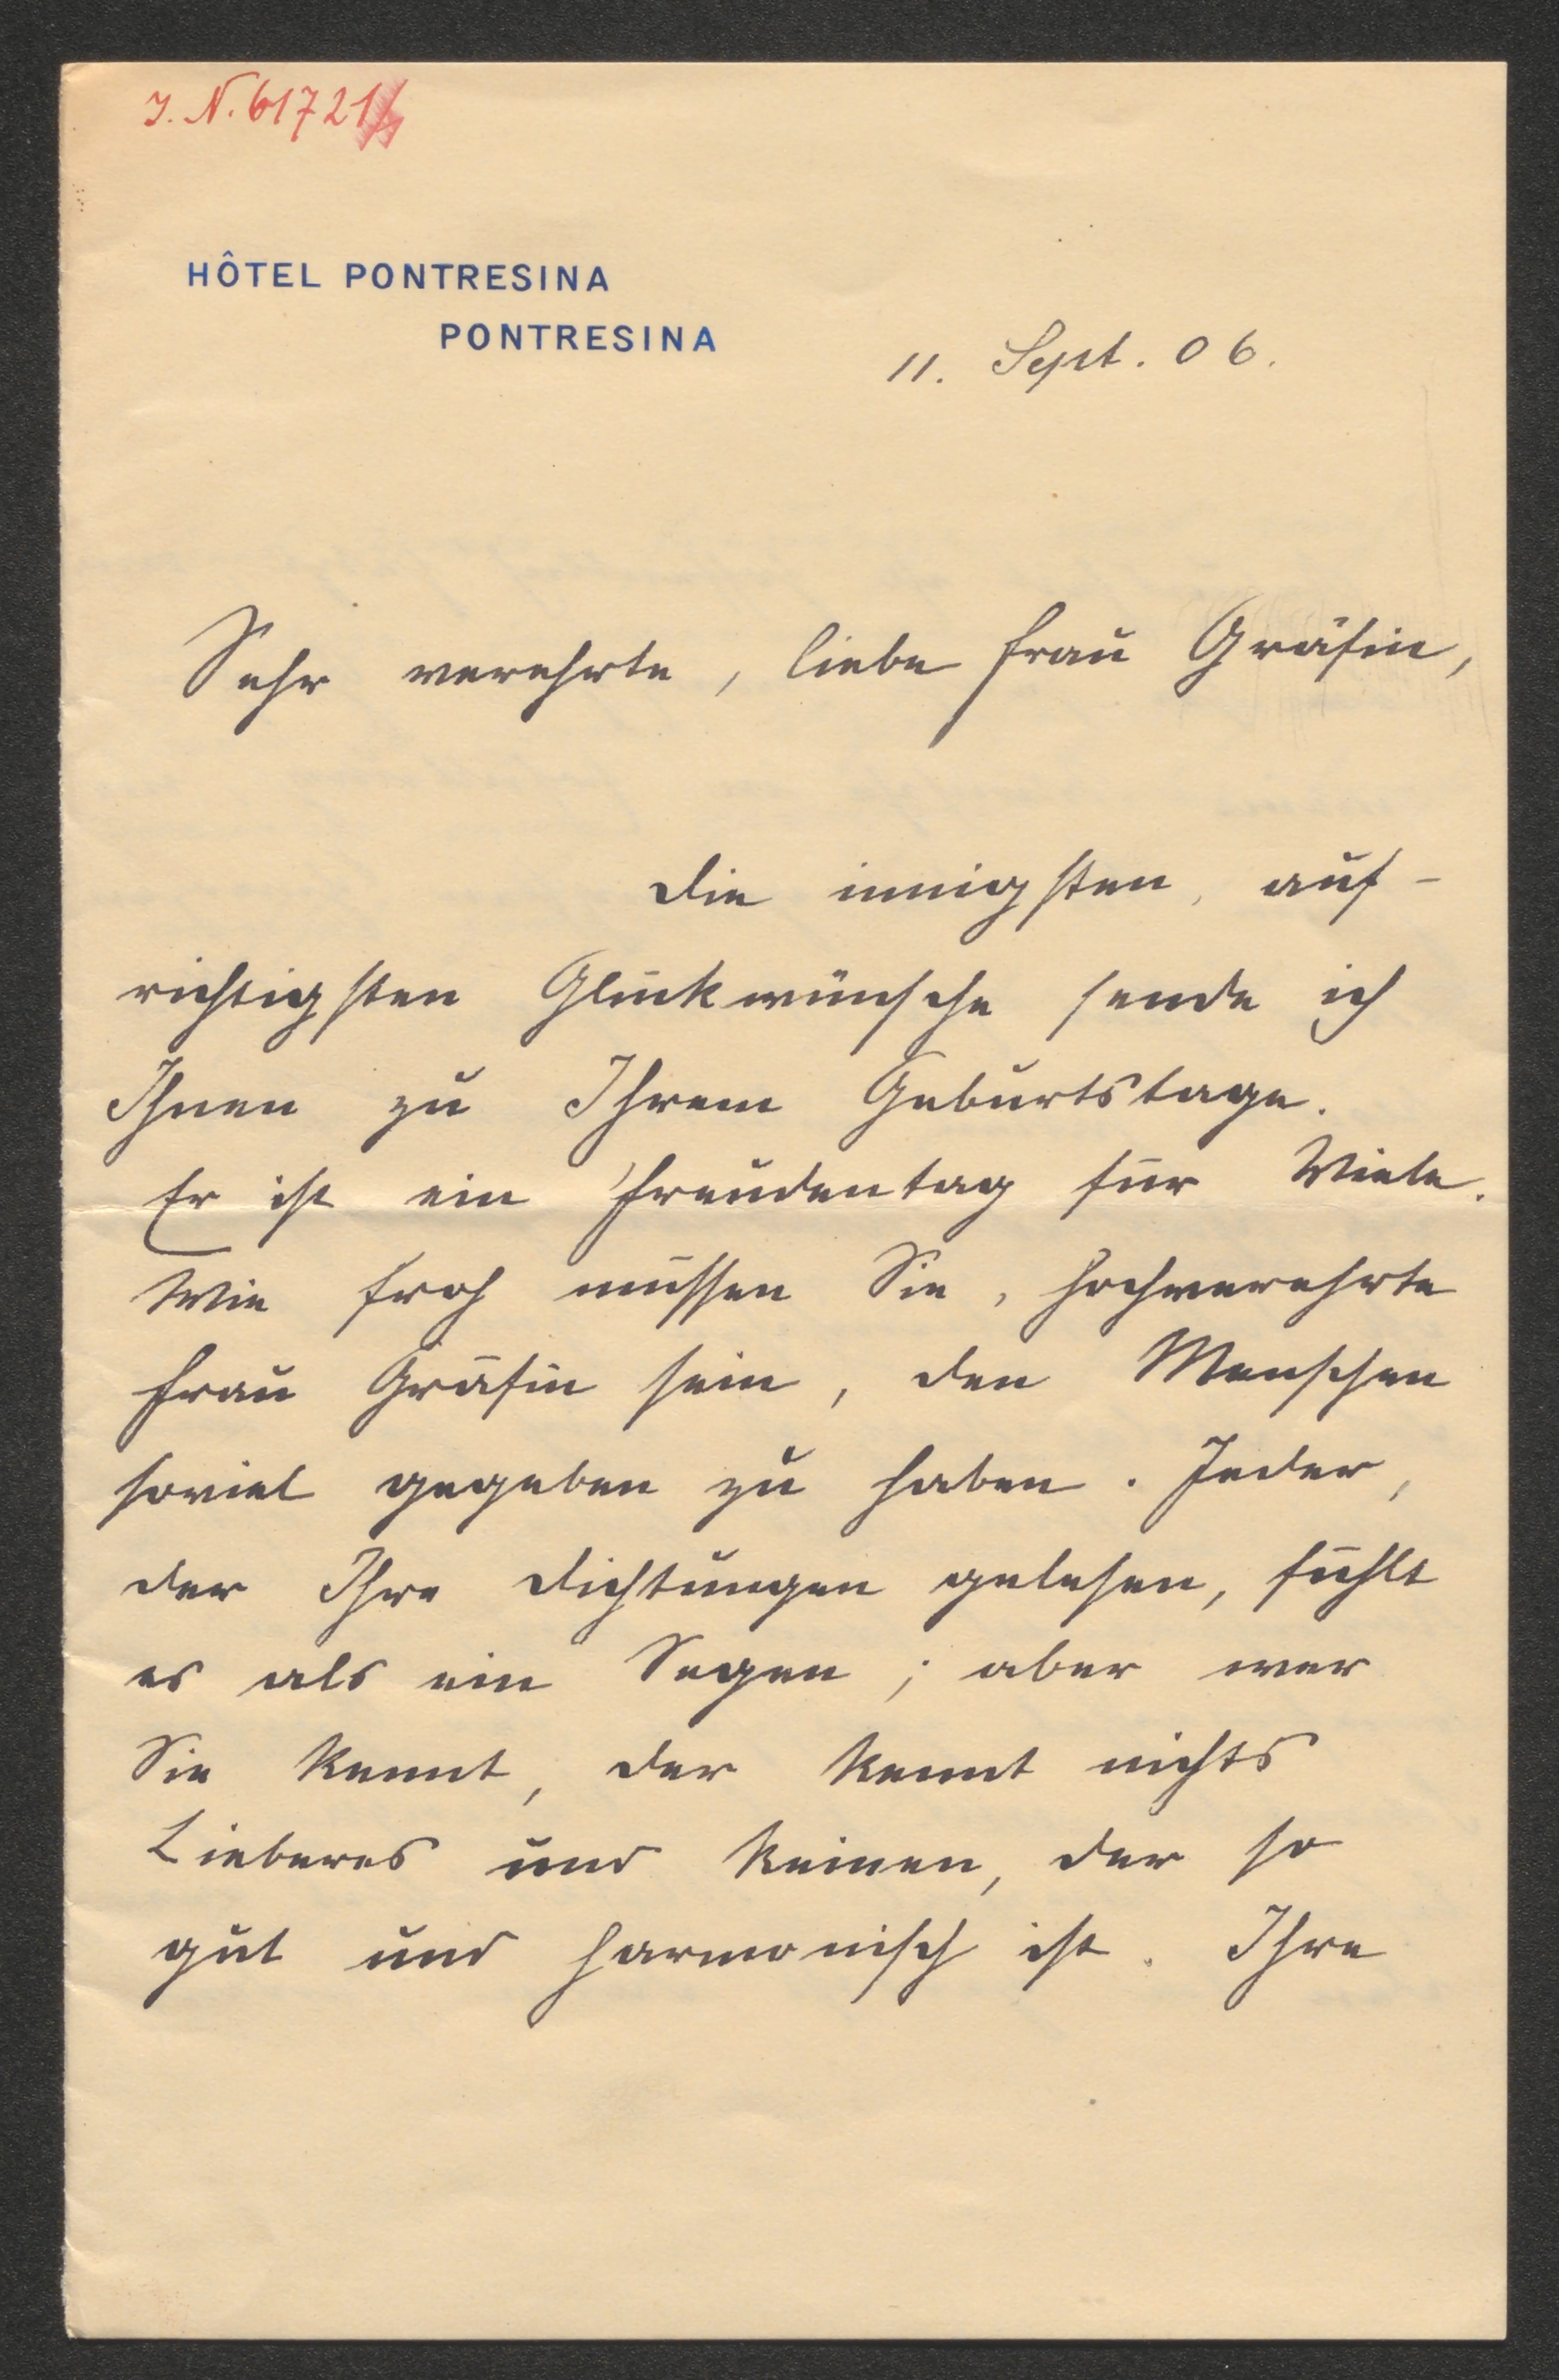 J. N. 61721
HÔTEL PONTRESINA
PONTRESINA
11. Sept. 06.
Sehr verehrte, liebe Frau Gräfin,
die innigsten, auf-
richtigsten Glückwünsche sende ich
Ihnen zu Ihrem Geburtstage.
Er ist ein Freudentag für Viele.
Wie froh müssen Sie, hochverehrte
Frau Gräfin sein, den Menschen
soviel gegeben zu haben. Jeder,
der Ihre Dichtungen gelesen, fühlt
es als ein Segen; aber wer
Sie kennt, der kennt nichts
Lieberes und keinen, der so
gut und harmonisch ist. Ihre